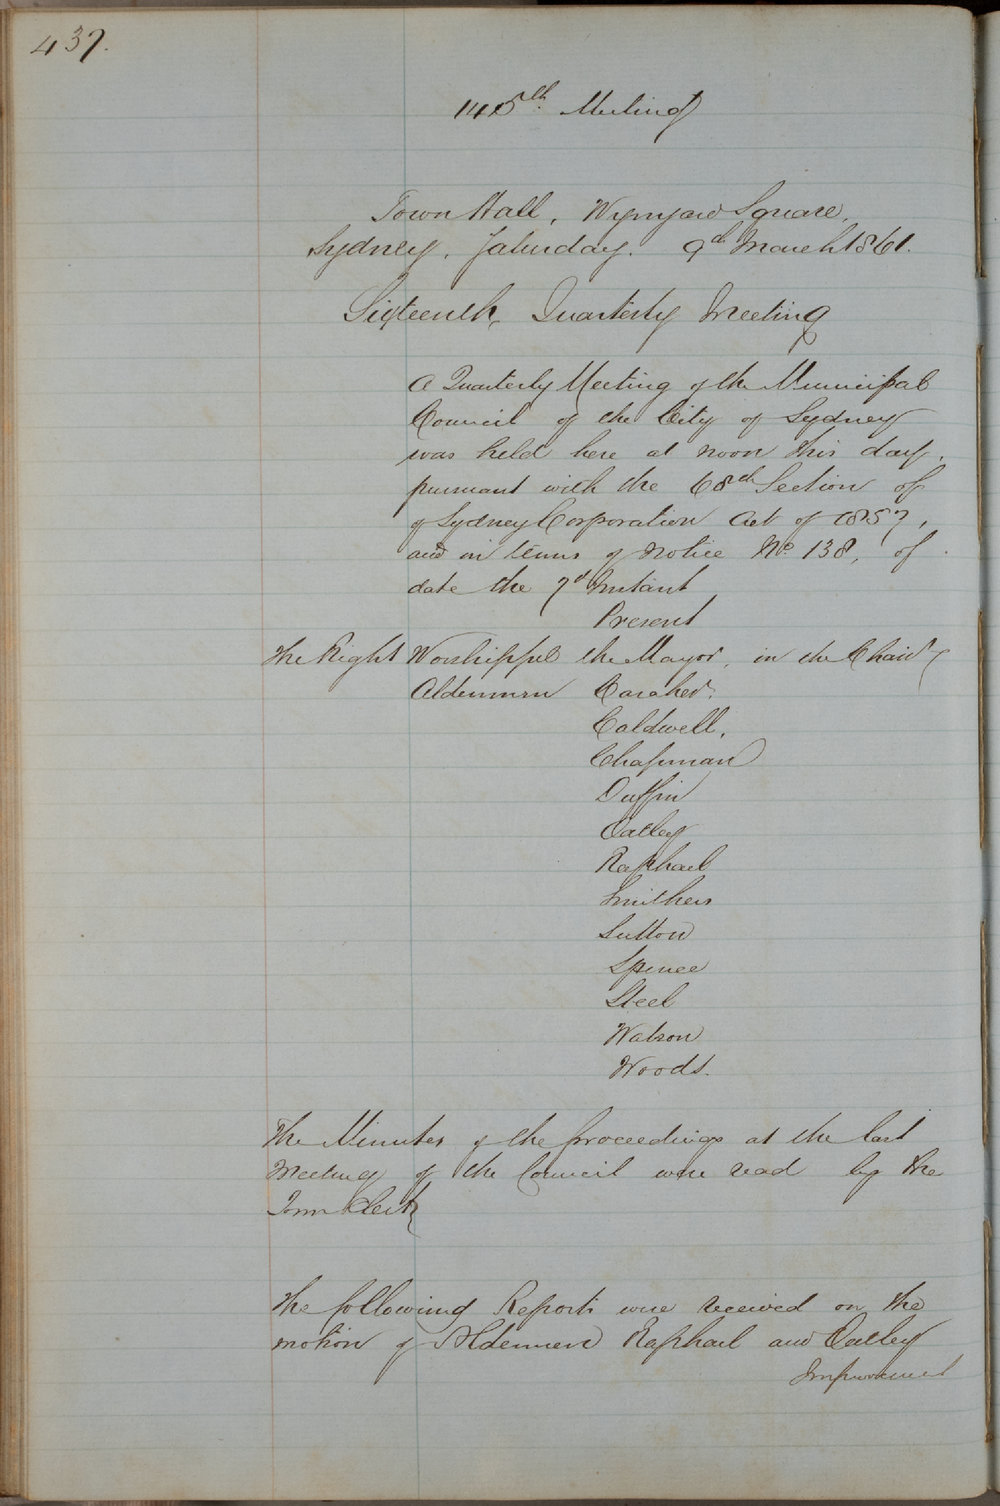 437.
145th. Meeting
Town Hall, Wynyard Square,
Sydney, Saturday. 9th March 1861.
Sixteenth Quarterly Meeting
A Quarterly Meeting of the Municipal
Council of the City of Sydney
was held here at noon this day.
pursuant with the 68th Section of
of Sydney Corporation Act of 1857,
and in terms of Notice No. 138, of
date the 7th Instant
Present
The Right Worshipful the Mayor, in the Chair
Aldermen Caraher,
Caldwell,
Chapman
Duffin
Oatley
Raphael
Smithers
Sutton
Spence
Steel
Watson
Woods.
The Minutes of the proceedings at the last
Meeting of the Council were read by the
Town Clerk
The following Reports were received on the
motion of Aldermen Raphael and Oatley
Improvement